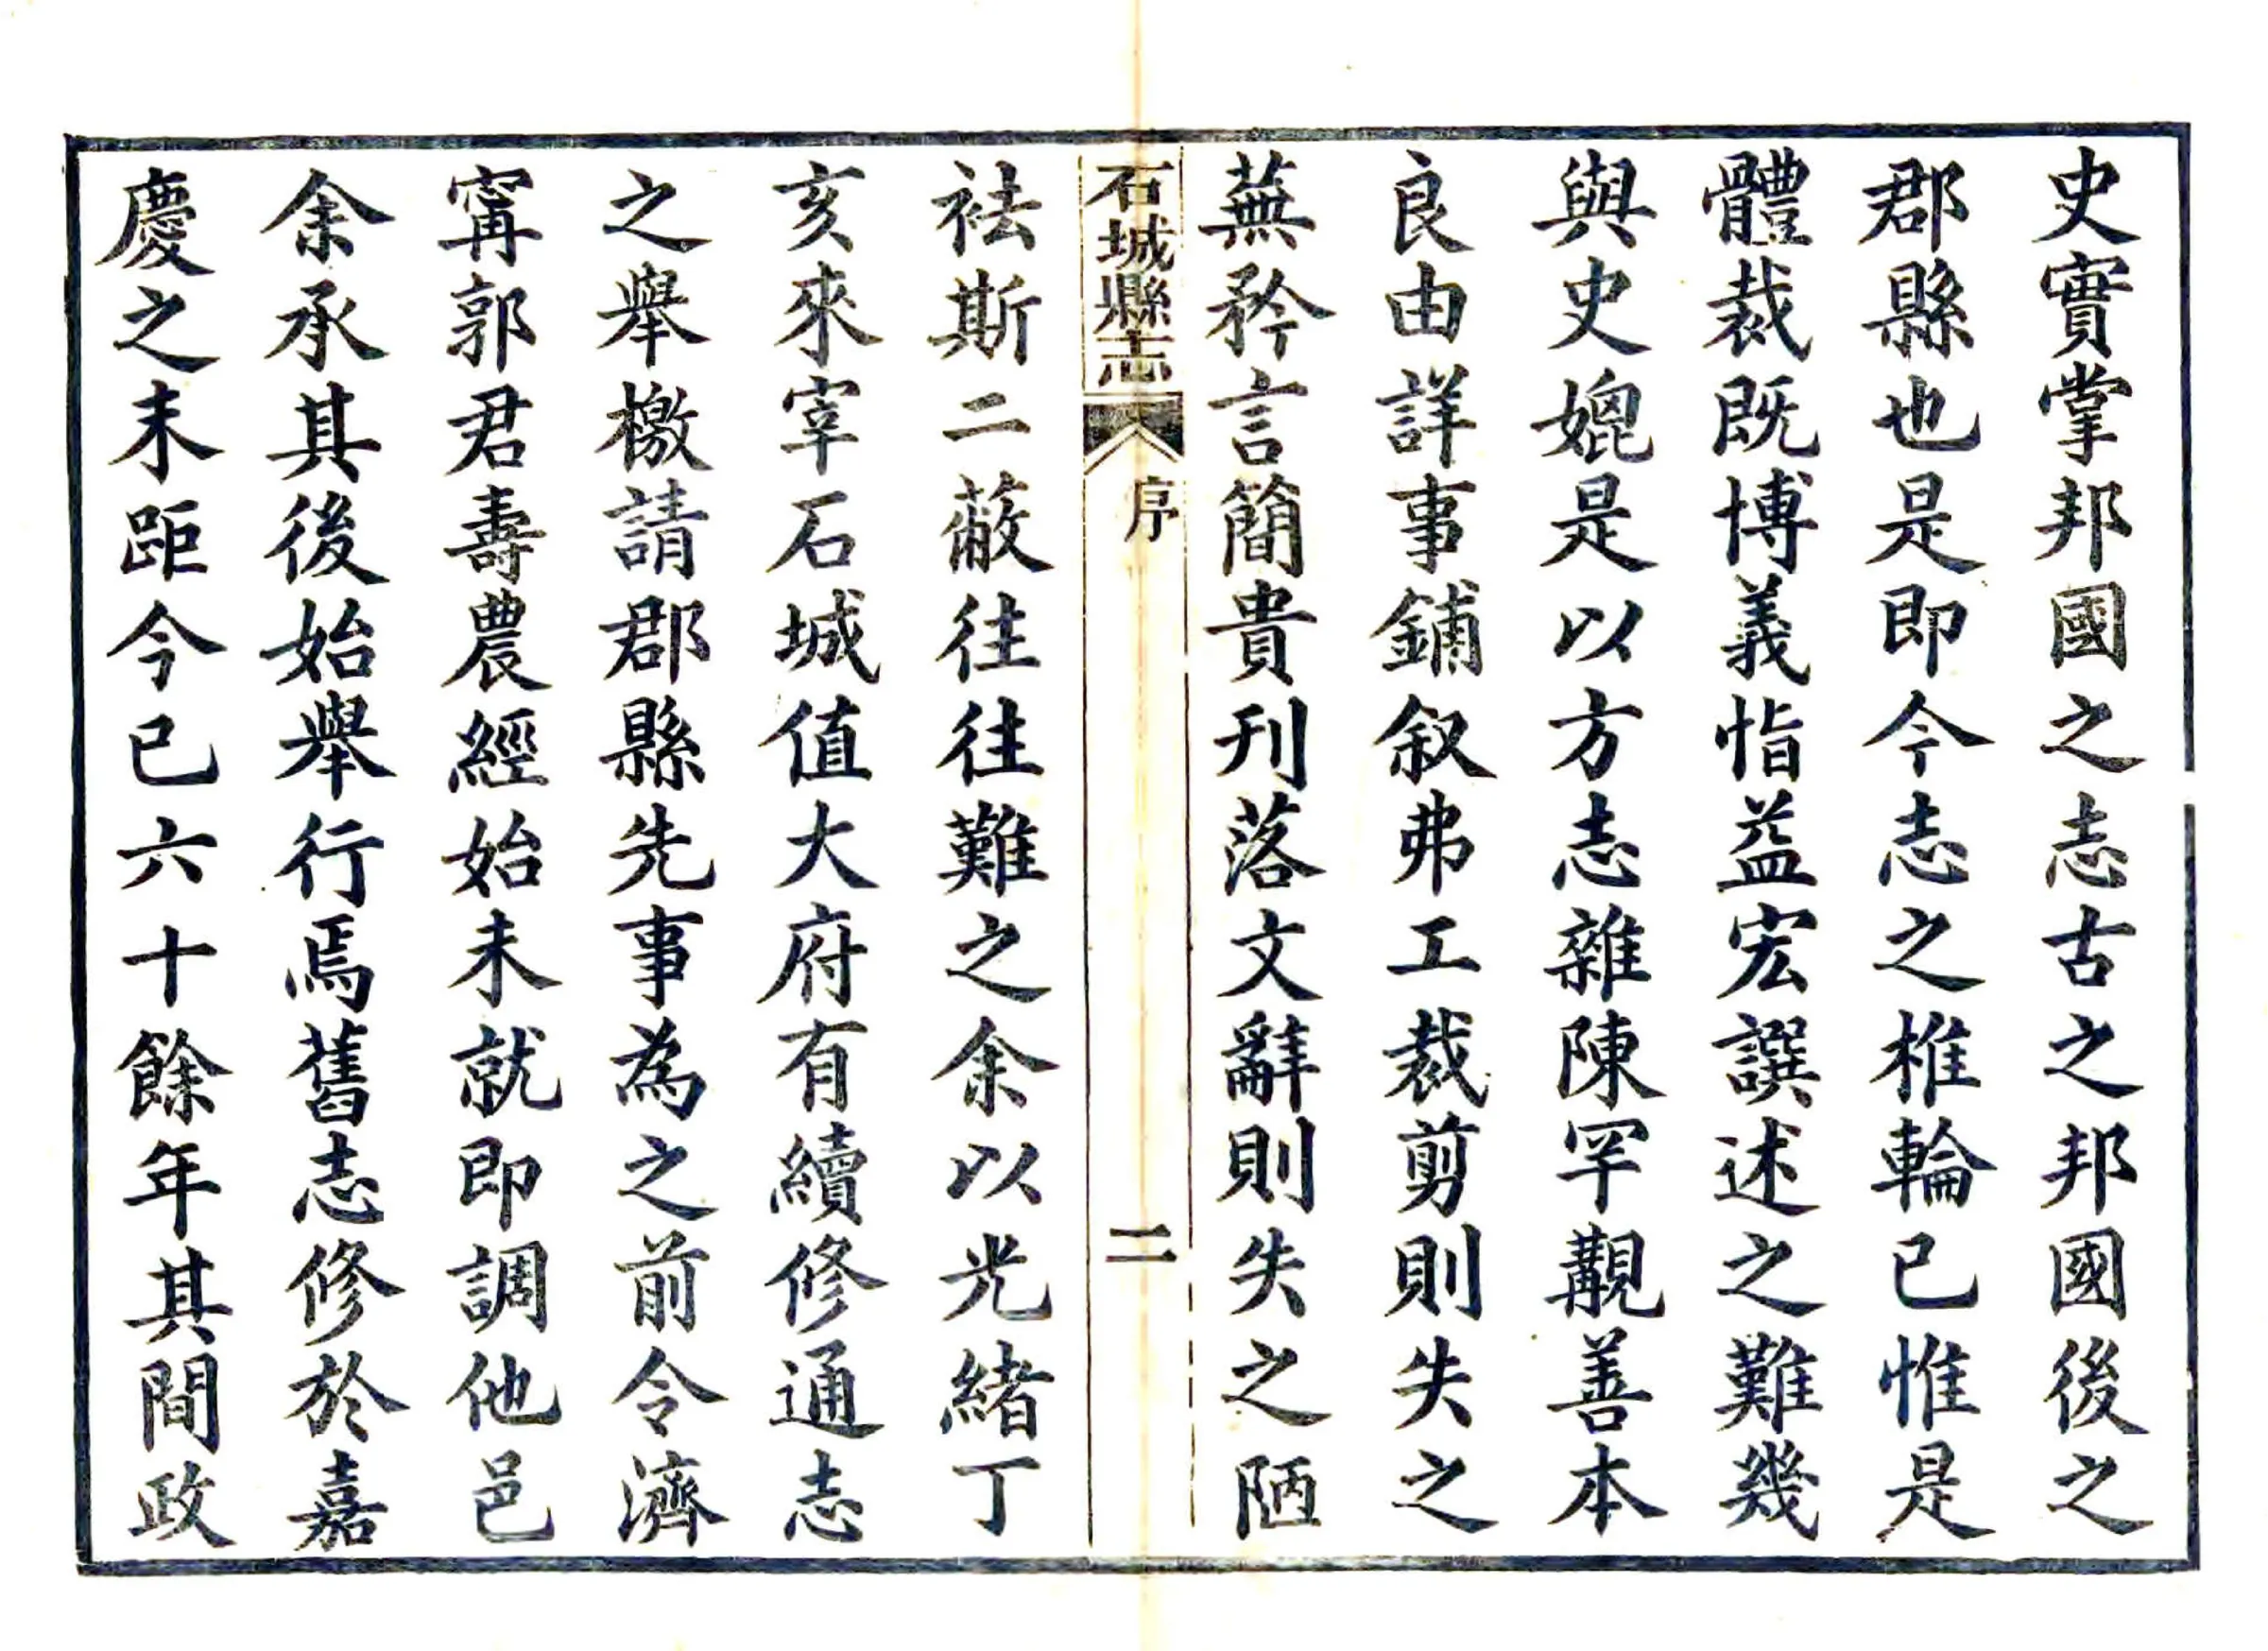 史實掌邦國之志古之邦國後之
郡縣也是即今志之椎輪已惟是
體裁既博義恉益宏譔述之難幾
與史媲是以方志雜陳罕覯善本
良由詳事鋪叙弗工裁剪則失之
蕪矜言簡貴刋落文辭則失之陋
石城縣志
序
二
袪斯二蔽往往難之余以光緒丁
亥來宰石城值大府有續修通志
之舉檄請郡縣先事為之前令濟
甯郭君壽農經始未就即調他邑
余承其後始舉行焉舊志修於嘉
慶之末距今已六十餘年其間政